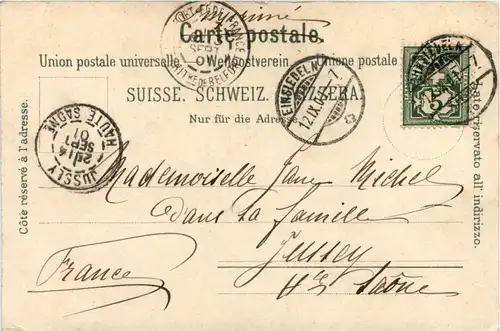 Imprimé
Carte postale.
Union postale universelle. Weltpostverein. Unione postale
SUISSE. SCHWEIZ. SVIZZERA.
Nur für die Adresse.
Côté réservé à l'adresse.
Lato riservato all' indirizzo.
EINSIEDELN
12.IX.01
JUSSEY
SEPT
01
HAUTE SAÔNE
5
Mademoiselle Jane Michel
dans la famille
Jussey
Hte Saône
France